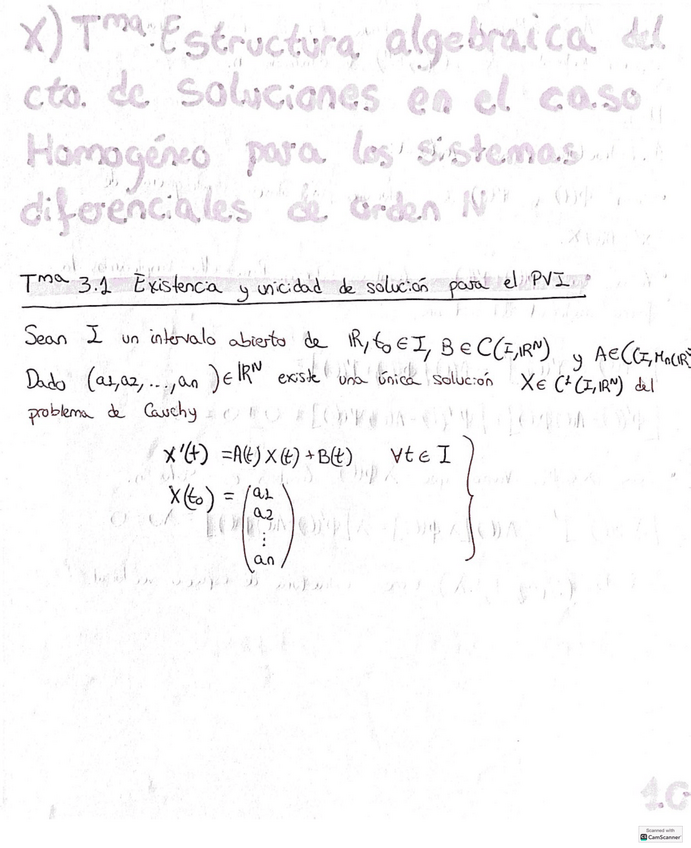 X) Tma. Estructura algebraica del
cto. de soluciones en el caso
Homogéneo para los sistemas
diferenciales de orden N
Tma 3.1 Existencia y unicidad de solución para el PVI.
Sean I un intervalo abierto de ℝ, t₀ ∈ I, B ∈ C(I,ℝᴺ) y A ∈ C(I, Mn(ℝ)
Dado (a1, a2, ..., an) ∈ ℝᴺ existe una única solución X ∈ C¹(I,ℝᴺ) del
problema de Cauchy
X'(t) = A(t) X(t) + B(t) ∀t ∈ I
X(t₀) = (a1
a2
⋮
an)
1.0
Scanned with
CamScanner